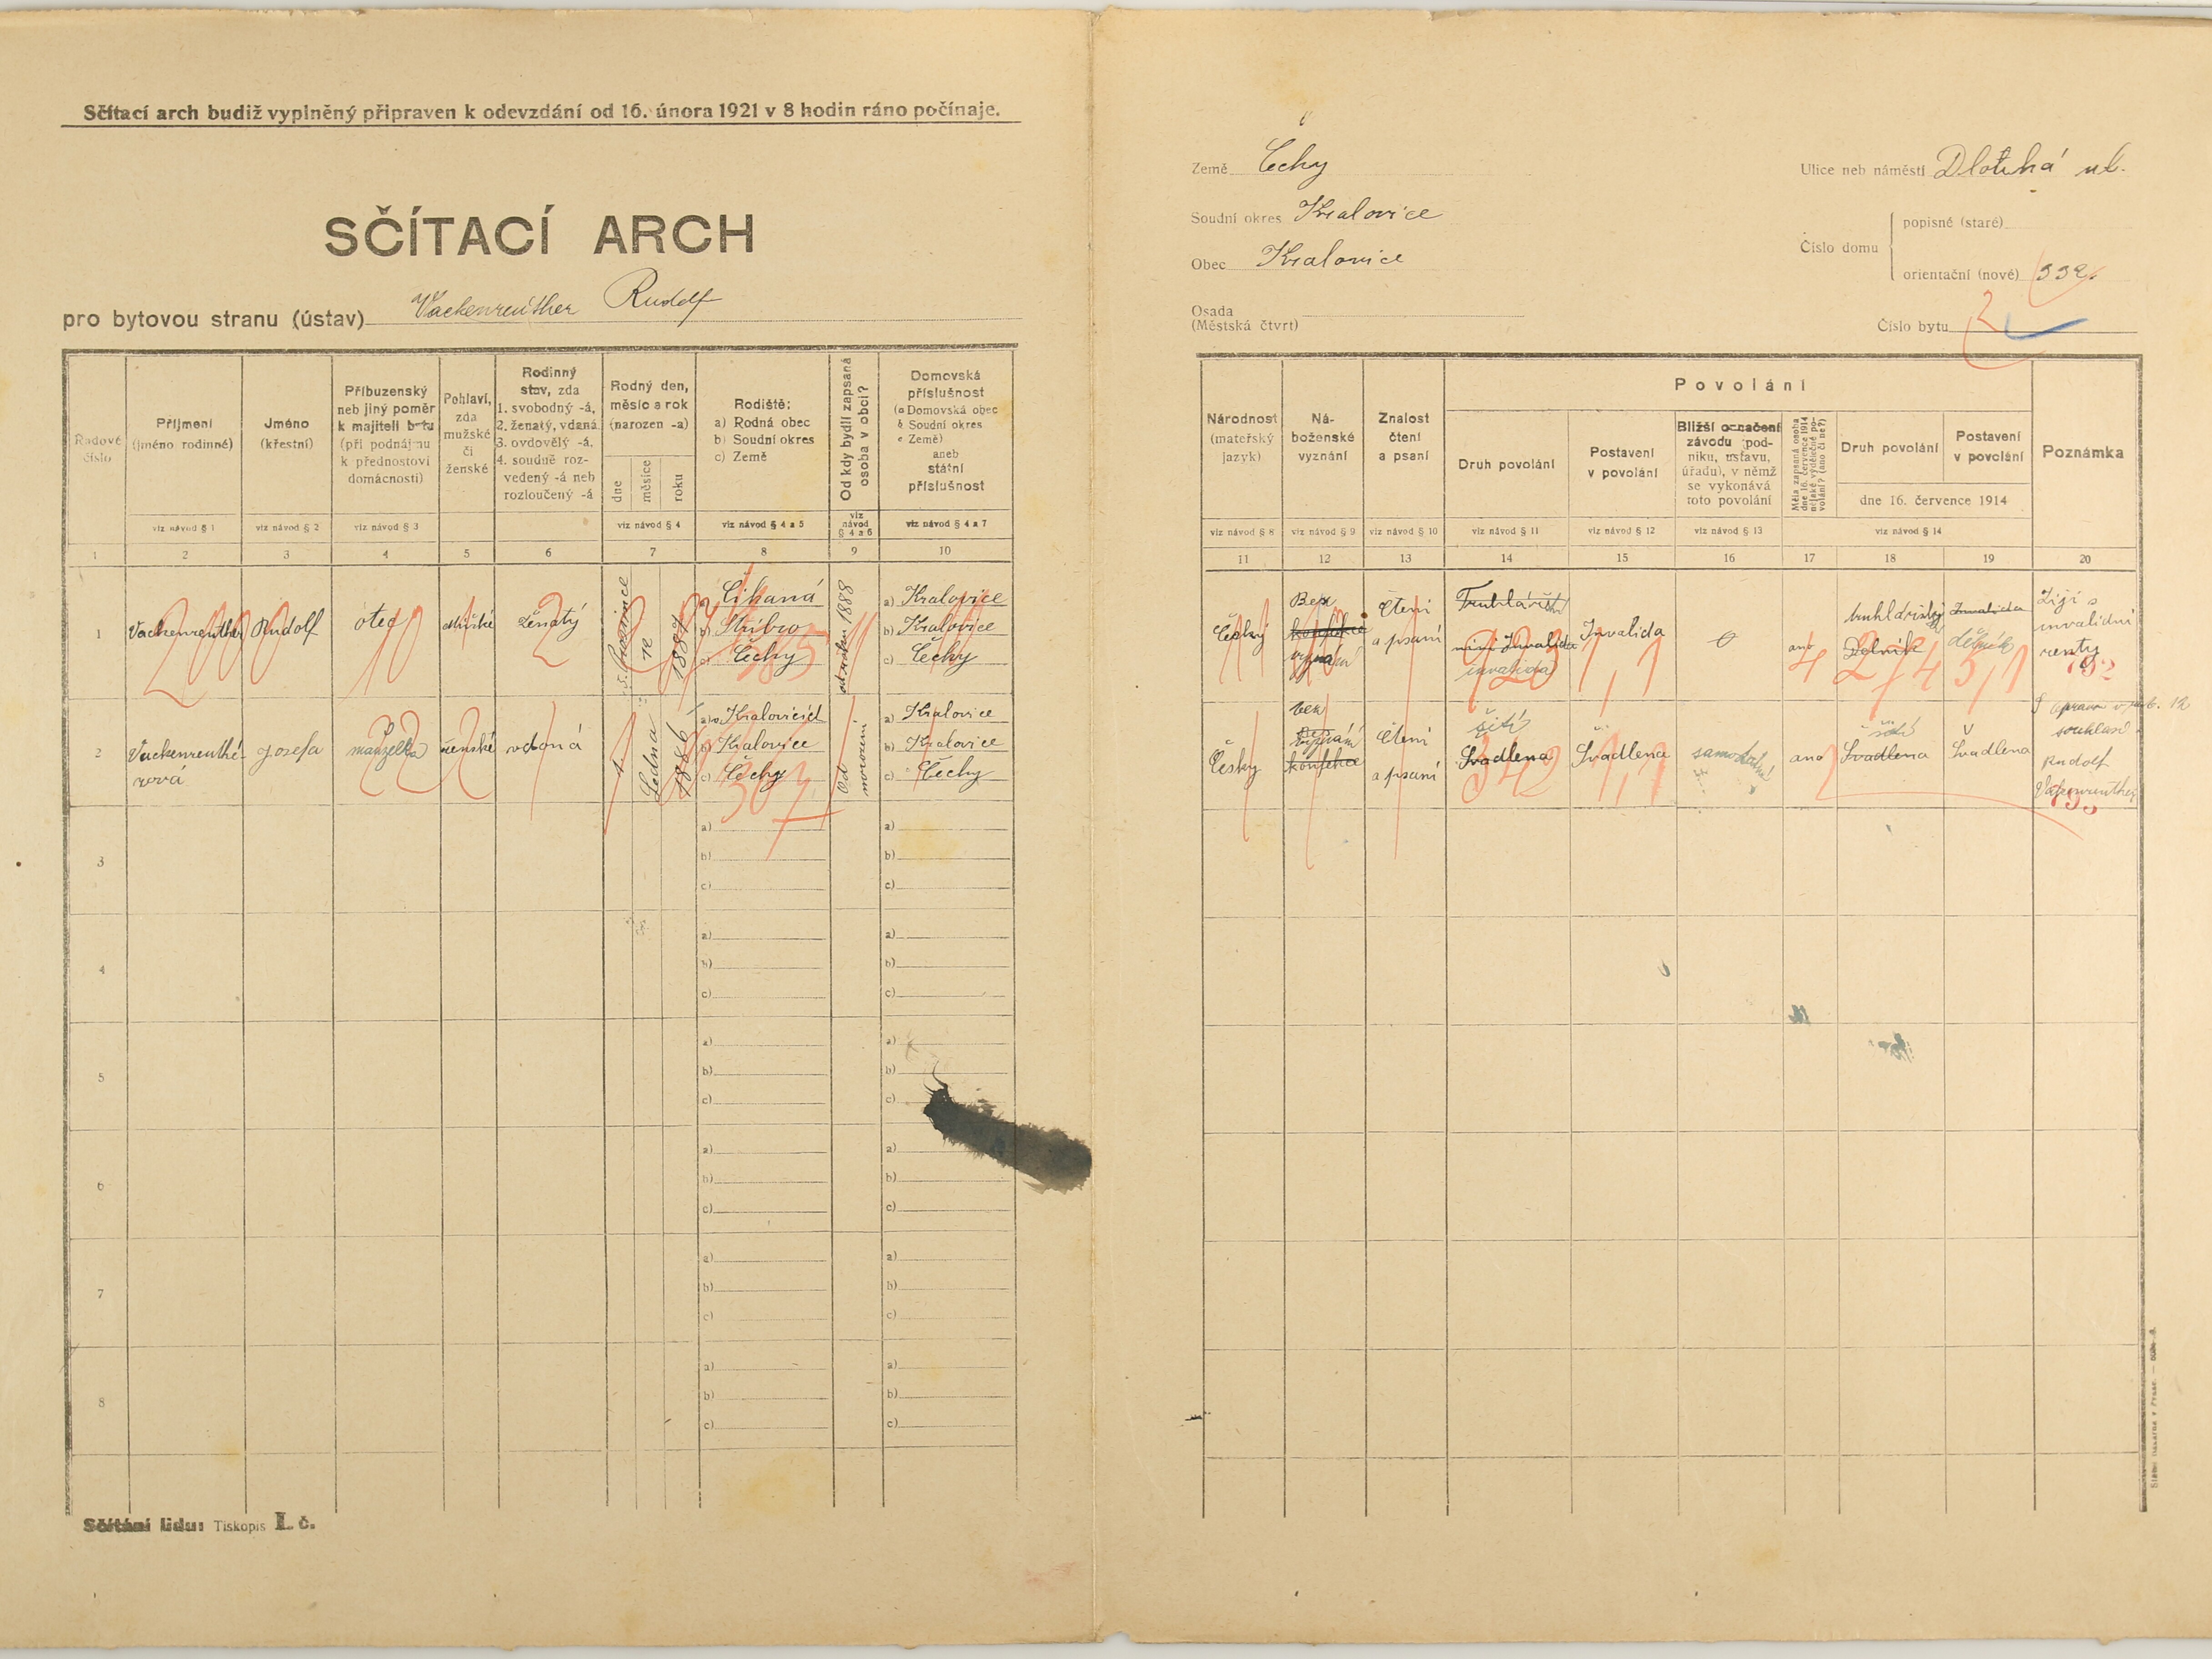 Sčítací arch budiž vyplněný připraven k odevzdání od 16. února 1921 v 8 hodin ráno počínaje.
SČÍTACÍ ARCH
pro bytovou stranu (ústav) Vackenreuther Rudolf
Země Čechy
Soudní okres Kralovice
Obec Kralovice
Osada
(Městská čtvrt)
Ulice neb náměstí Dlouhá ul.
Číslo domu
popisné (staré)
orientační (nové) 332
Číslo bytu 2
Řadové
číslo
Příjmení
(jméno rodinné)
viz návod § 1
Jméno
(křestní)
viz návod § 2
Příbuzenský
neb jiný poměr
k majiteli bytu
(při podnájmu
k přednostovi
domácnosti)
viz návod § 3
Pohlaví,
zda
mužské
či
ženské
Rodinný
stav, zda
1. svobodný -á,
2. ženatý, vdaná
3. ovdovělý -á.
4. soudně roz-
vedený -á neb
rozloučený -á
Rodný den,
měsíc a rok
(narozen -a)
dne
měsíce
roku
viz návod § 4
Rodiště:
a) Rodná obec
b) Soudní okres
c) Země
viz návod § 4 a 5
Od kdy bydlí zapsaná
osoba v obci?
viz
návod
§ 4 a 6
Domovská
příslušnost
(a Domovská obec
b Soudní okres
c Země)
aneb
státní
příslušnost
viz návod § 4 a 7
Národnost
(mateřský
jazyk)
viz návod § 8
Ná-
boženské
vyznání
viz návod § 9
Znalost
čtení
a psaní
viz návod § 10
Povolání
Druh povolání
viz návod § 11
Postavení
v povolání
viz návod § 12
Bližší označení
závodu (pod-
niku, ústavu,
úřadu), v němž
se vykonává
toto povolání
viz návod § 13
Měla zapsaná osoba
dne 16. července 1914
nějaké výdělečné po-
volání? (ano či ne?)
Druh povolání
Postavení
v povolání
dne 16. července 1914
viz návod § 14
Poznámka
1 2 3 4 5 6 7 8 9 10
11 12 13 14 15 16 17 18 19 20
1 Vackenreuther Rudolf otec mužské ženatý
5. prosince
1887
a) Cihaná
b) Stříbro
c) Čechy
od roku 1888
a) Kralovice
b) Kralovice
c) Čechy
Český
Bez
konfekce
vyznání
čtení
a psaní
Truhlářství
nyní Invalida
invalida
Invalida
0
ano
truhlářský
Dělník
Invalida
dělník
Žijí s
invalidní
renty
2 Vackenreuthe-
rová
Josefa manželka ženské vdaná
1
Ledna
1886
a) Kralovicích
b) Kralovice
c) Čechy
Od
narození
a) Kralovice
b) Kralovice
c) Čechy
Česky
bez
vyznání
konfekce
čtení
a psaní
šití
Švadlena
Švadlena
samostatná
ano
šití
Švadlena
Švadlena
souhlasí
Rudolf
Vackenreuther
3
a)
b)
c)
a)
b)
c)
4
a)
b)
c)
a)
b)
c)
5
a)
b)
c)
a)
b)
c)
6
a)
b)
c)
a)
b)
c)
7
a)
b)
c)
a)
b)
c)
8
a)
b)
c)
a)
b)
c)
Sčítání lidu: Tiskopis I. č.